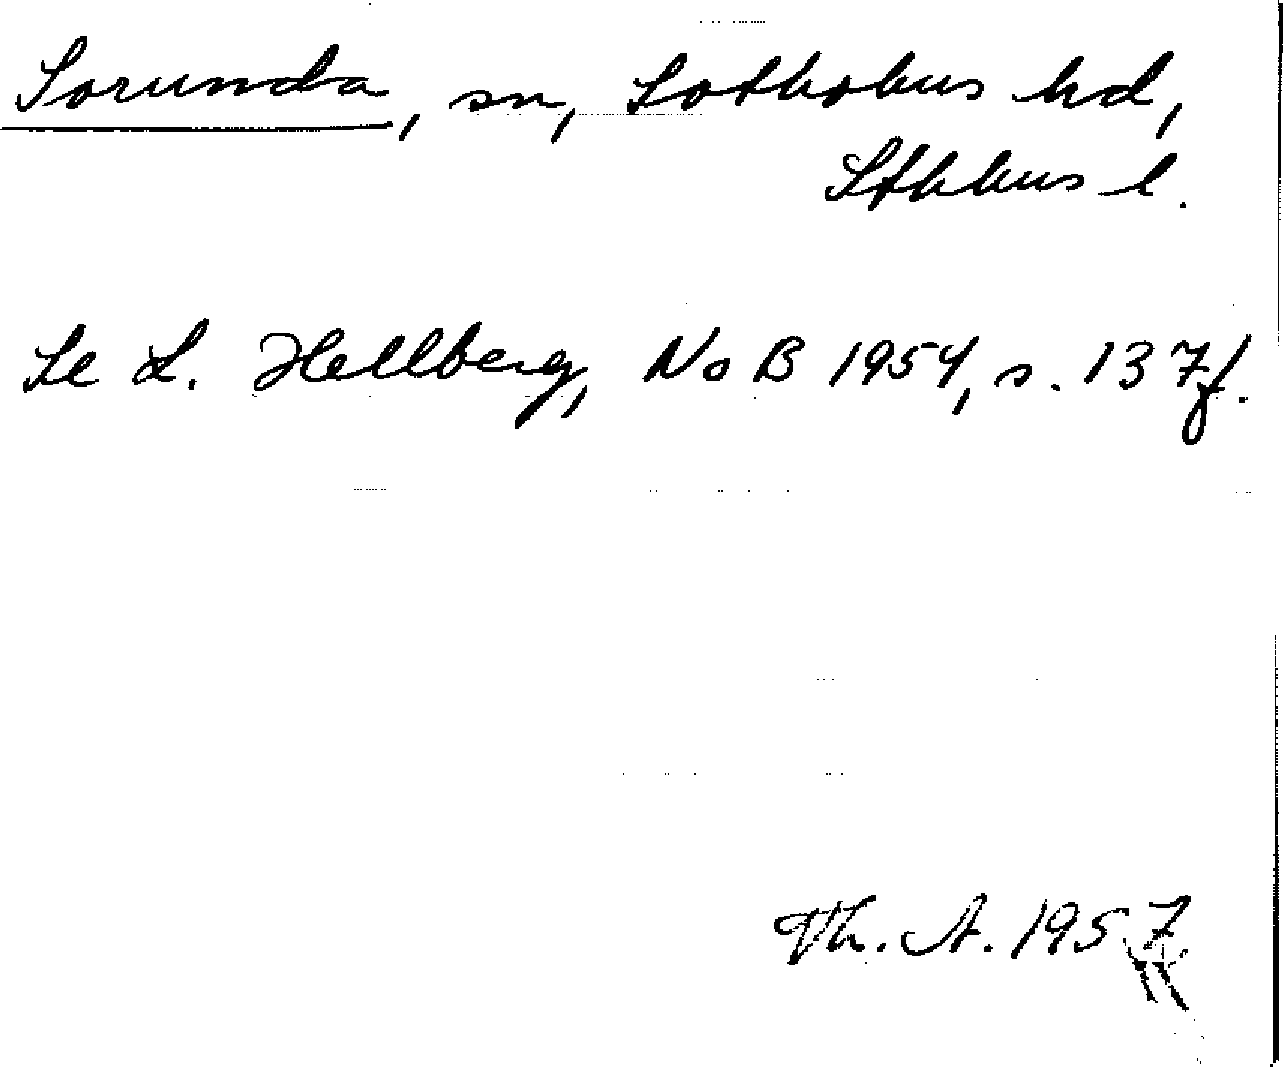 Sorunda, sn, Sotholms hd,
Sthlms l.
Se L. Hellberg, NoB 1954, s. 137f.
Th. A. 1957.